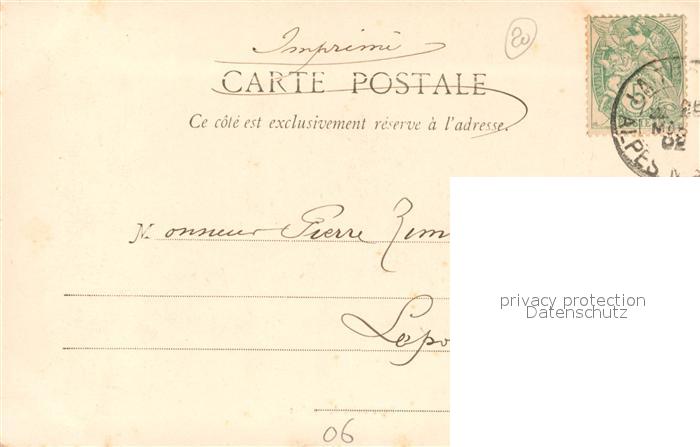 Imprimé
20
CARTE POSTALE
Ce côté est exclusivement réservé à l'adresse.
ALPES M
02
Monsieur Pierre Zim
Lepo
privacy protection
Datenschutz
06